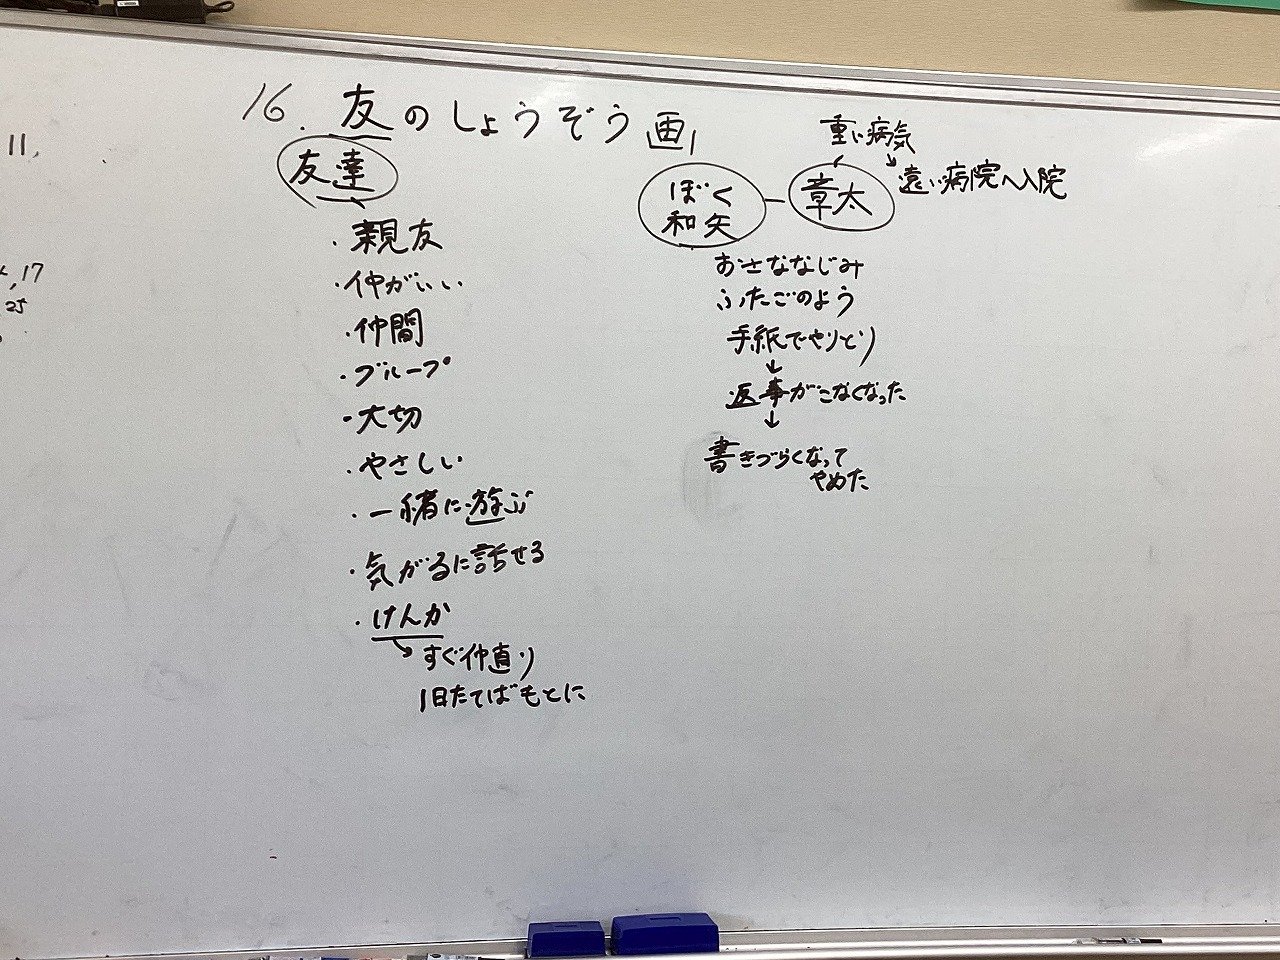 16. 友のしょうぞう画
友達
・親友
・仲がいい
・仲間
・グループ
・大切
・やさしい
・一緒に遊ぶ
・気がるに話せる
・けんか
すぐ仲直り
1日たてばもとに
重い病気
遠い病院へ入院
ぼく
和矢
章太
おさななじみ
ふたごのよう
手紙でやりとり
↓
返事がこなくなった
↓
書きづらくなって
やめた
11,
17
25